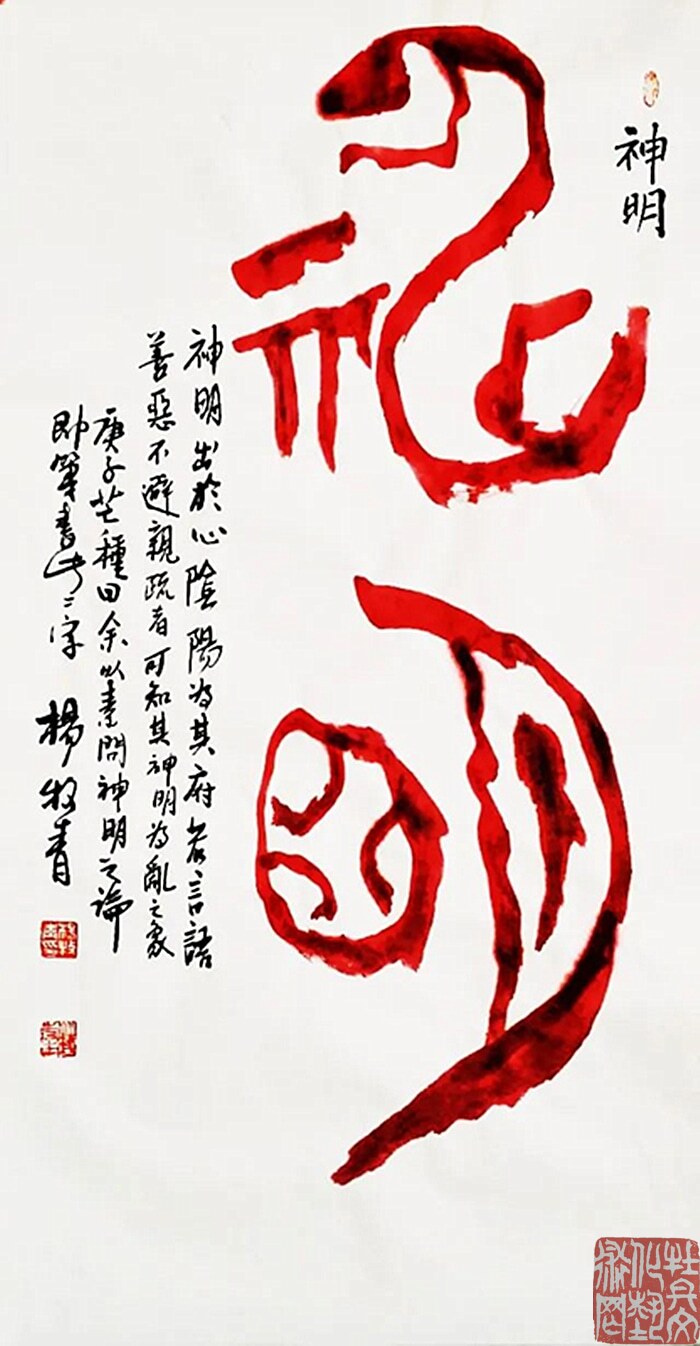 神明
神明
神明出於心陰陽為其府若言語
善惡不避親疏者可知其神明為亂之象
庚子芒種日余以素問神明之論
即筆書此二字 楊牧青